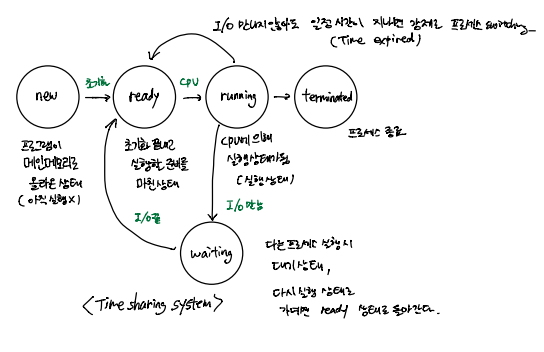 I/O 만나지 않아도 일정시간이 지나면 강제로 프로세스 switching
(Time expired)
초기화
CPU
new
ready
running
terminated
프로그램이
메인메모리로
올라온 상태
(아직 실행X)
초기화 끝내고
실행할 준비를
마친 상태
CPU에 의해
실행상태가 됨
(실행상태)
프로세스 종료
I/O끝
I/O만남
waiting
다른 프로세스 실행 시
대기상태,
다시 실행 상태로
가려면 ready 상태로 돌아간다.
<Time sharing system>